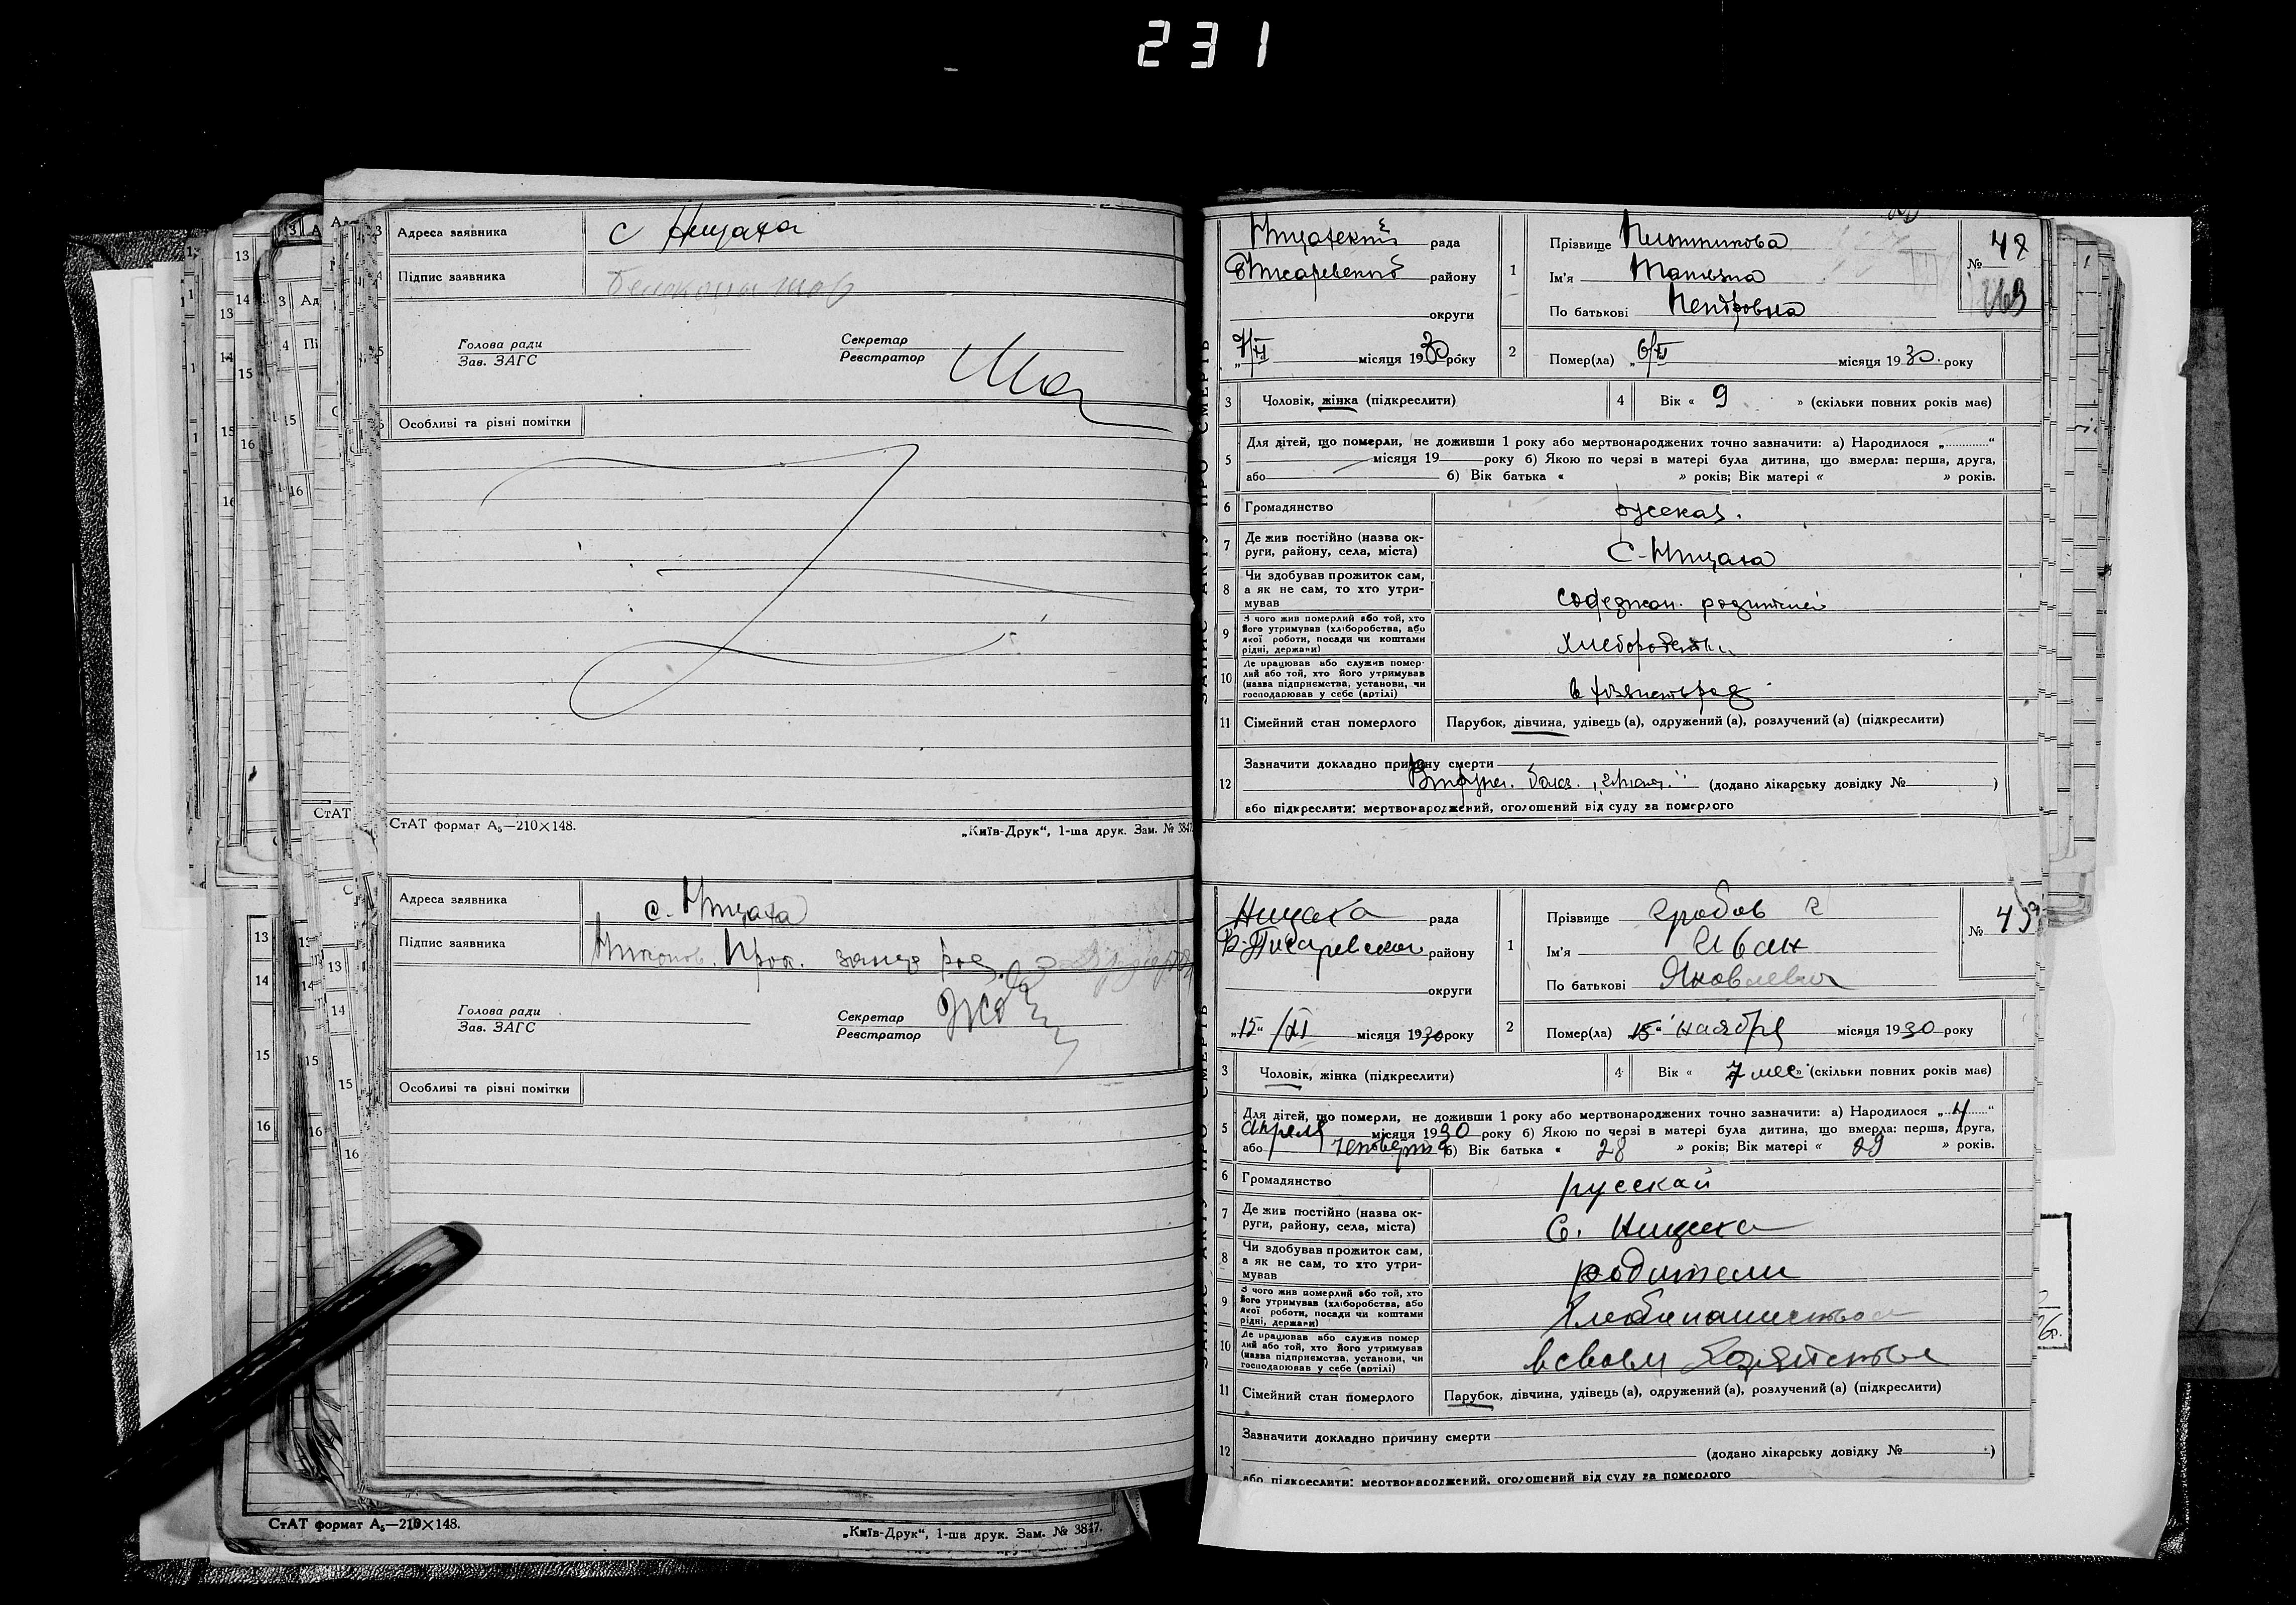 231
Адреса заявника
с Ницаха
Підпис заявника
Голова ради
Зав. ЗАГС
Секретар
Реєстратор
Особливі та різні помітки
СтАТ формат А₅—210×148.
„Київ-Друк“, 1-ша друк. Зам. № 3847
Адреса заявника
с. Ницаха
Підпис заявника
Голова ради
Зав. ЗАГС
Секретар
Реєстратор
Особливі та різні помітки
СтАТ формат А₅—210×148.
„Київ-Друк“, 1-ша друк. Зам. № 3847.
ЗАПИС АКТУ ПРО СМЕРТЬ
рада
району
округи
7/XI місяця 1930 року
1
Прізвище Плотникова
Ім'я Татьяна
По батькові Петровна
№ 48
2
Помер(ла) „6/XI місяця 1930. року
3 Чоловік, жінка (підкреслити)
4 Вік « 9 » (скільки повних років має)
5
Для дітей, що померли, не доживши 1 року або мертвонароджених точно зазначити: а) Народилося „............“
місяця 19 року б) Якою по черзі в матері була дитина, що вмерла: перша, друга,
або б) Вік батька « » років; Вік матері « » років.
6 Громадянство русская.
7 Де жив постійно (назва округи, району, села, міста) С. Ницаха
8 Чи здобував прожиток сам, а як не сам, то хто утримував
9 З чого жив померлий або той, хто його утримував (хліборобства, або якої роботи, посади чи коштами рідні, держави)
10 Де працював або служив померлий або той, хто його утримував (назва підприємства, установи, чи господарював у себе (артілі)
11 Сімейний стан померлого Парубок, дівчина, удівець (а), одружений (а), розлучений (а) (підкреслити)
12
Зазначити докладно причину смерти
(додано лікарську довідку № )
або підкреслити: мертвонароджений, оголошений від суду за померлого
ЗАПИС АКТУ ПРО СМЕРТЬ
Ницаха рада
В-Писаревского району
округи
„15“ /XI місяця 1930 року
1
Прізвище Гробов
Ім'я Иван
По батькові Яковлевич
№ 49
2
Помер(ла) „15“ ноября місяця 1930 року
3 Чоловік, жінка (підкреслити)
4 Вік « 7 мес » (скільки повних років має)
5
Для дітей, що померли, не доживши 1 року або мертвонароджених точно зазначити: а) Народилося „ 4 “
апреля місяця 1930 року б) Якою по черзі в матері була дитина, що вмерла: перша, друга,
або четверта б) Вік батька « 28 » років; Вік матері « 29 » років.
6 Громадянство русскай
7 Де жив постійно (назва округи, району, села, міста) С. Ницаха
8 Чи здобував прожиток сам, а як не сам, то хто утримував родители
9 З чого жив померлий або той, хто його утримував (хліборобства, або якої роботи, посади чи коштами рідні, держави)
10 Де працював або служив померлий або той, хто його утримував (назва підприємства, установи, чи господарював у себе (артілі) в своем хозяйстве
11 Сімейний стан померлого Парубок, дівчина, удівець (а), одружений (а), розлучений (а) (підкреслити)
12
Зазначити докладно причину смерти
(додано лікарську довідку № )
або підкреслити: мертвонароджений, оголошений від суду за померлого